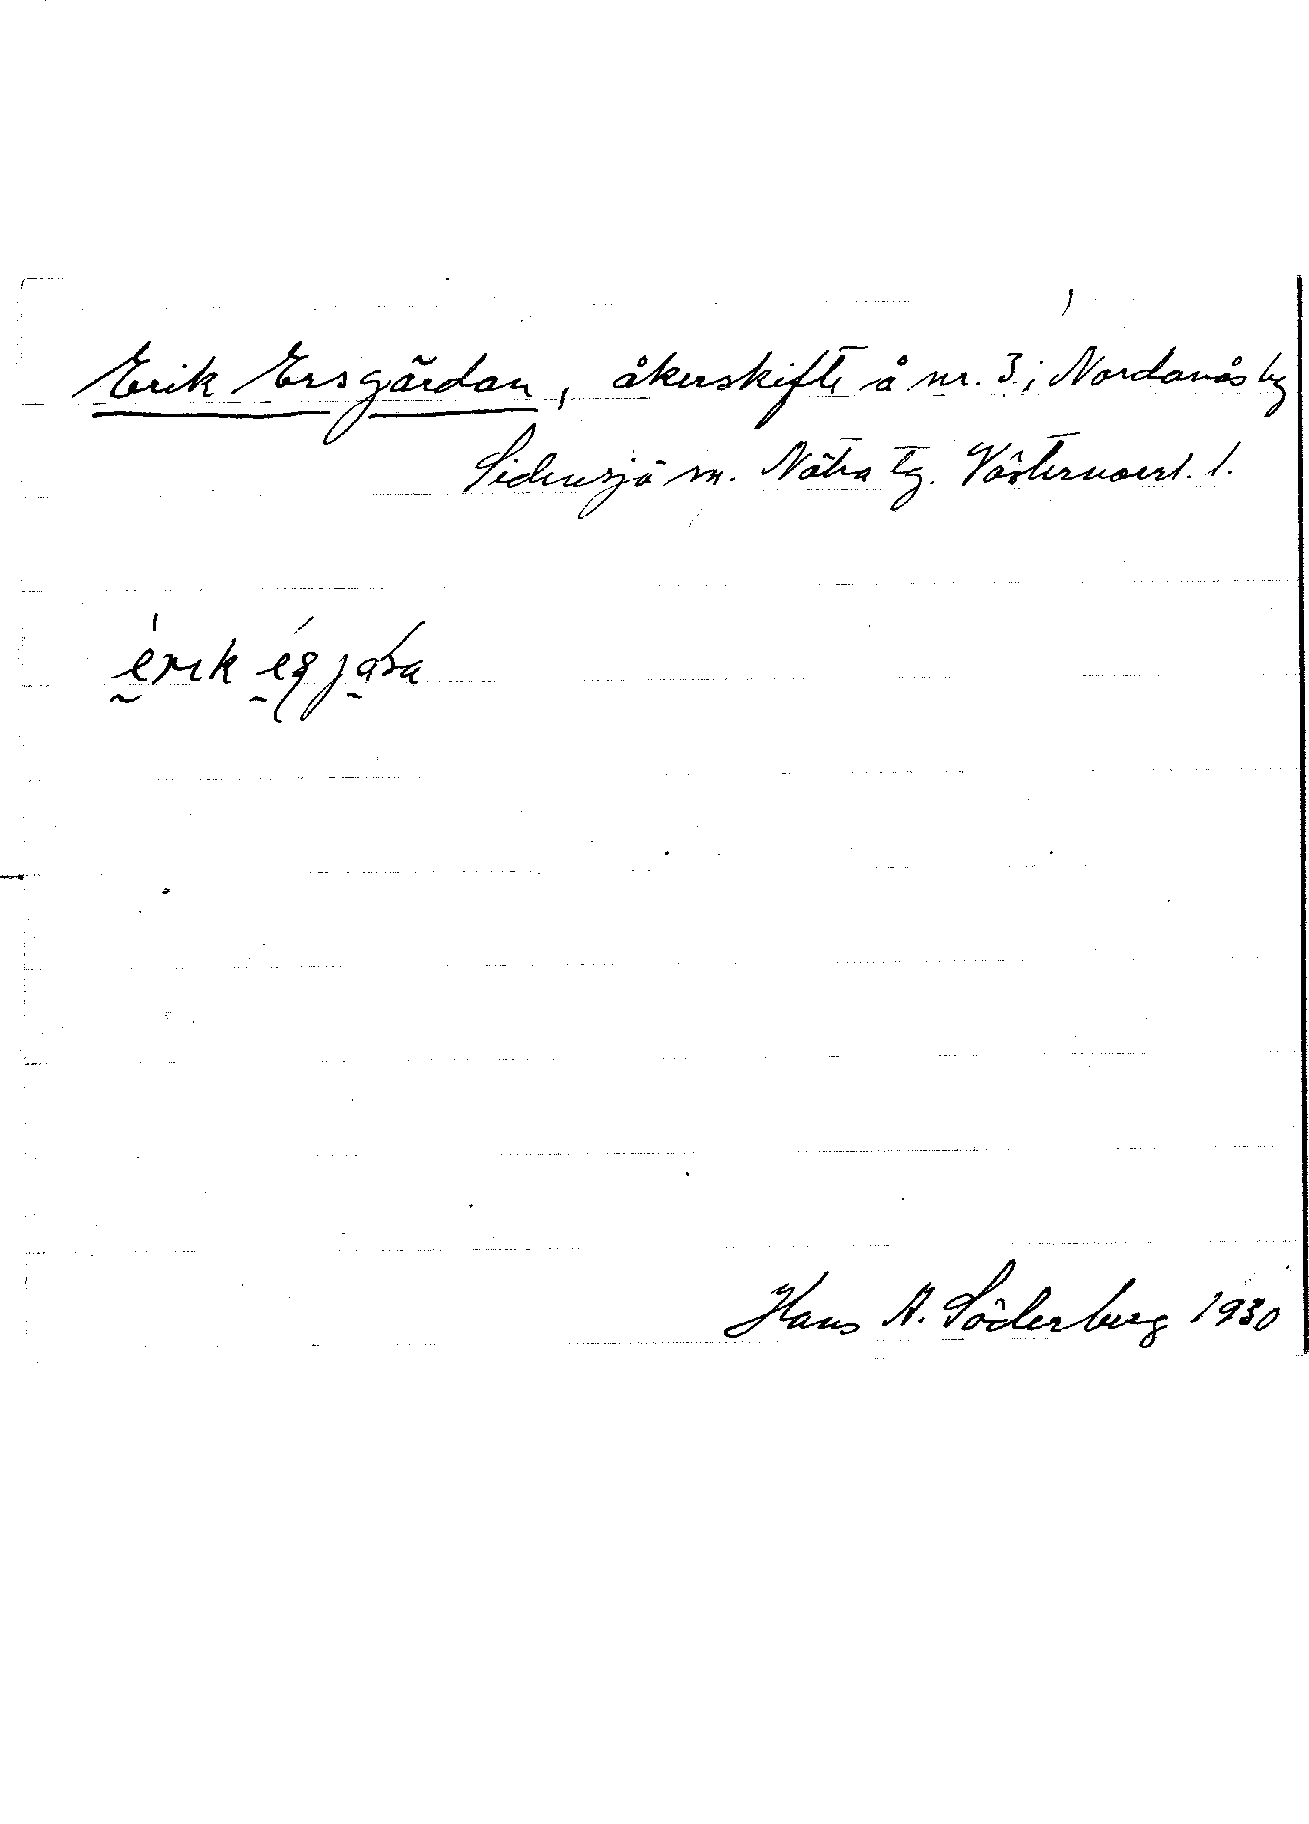 Erik Ersgärdan, åkerskifte å nr. 3 i Nordanås by
Sidensjö sn. Nätra tg. Västernorrl. l.
Hans A. Söderberg 1930